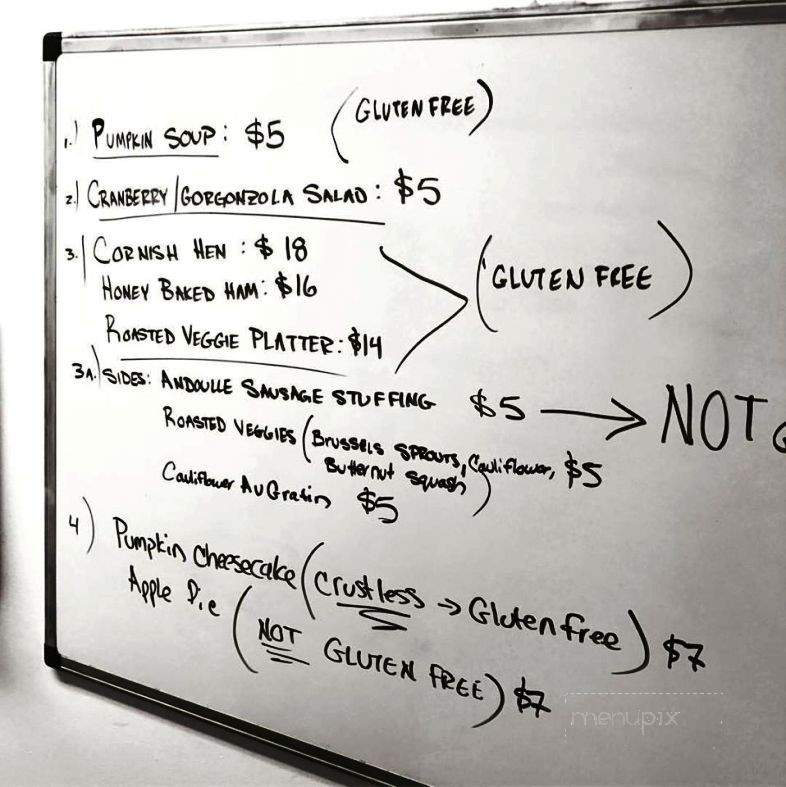 1.) PUMPKIN SOUP: $5 (GLUTEN FREE)
2.) CRANBERRY/GORGONZOLA SALAD: $5
3.) CORNISH HEN: $18
HONEY BAKED HAM: $16 (GLUTEN FREE)
ROASTED VEGGIE PLATTER: $14
3A.) SIDES: ANDOULLE SAUSAGE STUFFING $5 → NOT
ROASTED VEGGIES (BRUSSELS SPROUTS, Cauliflower, $5
Butternut squash)
Cauliflower Au Gratin $5
4) Pumpkin Cheesecake (Crustless → Gluten free) $7
Apple Pie (NOT GLUTEN FREE) $7
menupix